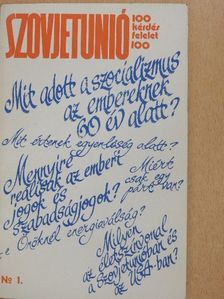 SZOVJETUNIÓ
100
kérdés
felelet
100
Mit adott a szocializmus
az embereknek
60 év alatt?
Mit értenek egyenlőség alatt?
Mennyire
reálisak az emberi
jogok és
szabadságjogok?
Miért
csak egy
párt van?
Önöknél energiaválság?
Milyen
az életszínvonal
a Szovjetunióban és
az USA-ban?
№ 1.